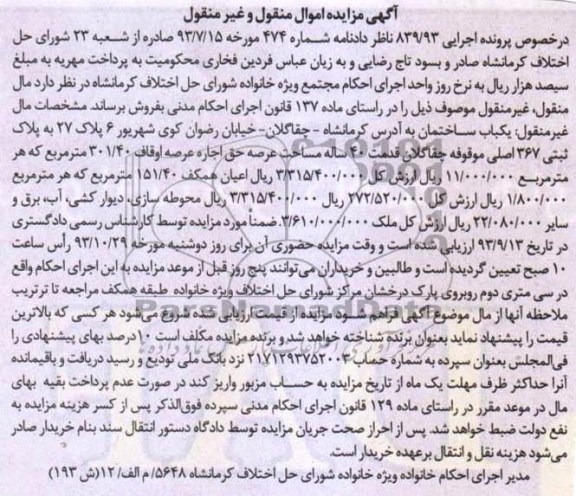 آگهی مزایده اموال منقول و غیر منقول
درخصوص پرونده اجرایی ۸۳۹/۹۳ ناظر دادنامه شماره ۴۷۴ مورخه ۹۳/۷/۱۵ صادره از شعبه ۲۳ شورای حل
اختلاف کرمانشاه صادر و بسود تاج رضایی و به زیان عباس فردین فخاری محکومیت به پرداخت مهریه به مبلغ
سیصد هزار ریال به نرخ روز واحد اجرای احکام مجتمع ویژه خانواده شورای حل اختلاف کرمانشاه در نظر دارد مال
منقول، غیرمنقول موصوف ذیل را در راستای ماده ۱۳۷ قانون اجرای احکام مدنی بفروش برساند. مشخصات مال
غیرمنقول: یکباب ساختمان به آدرس کرمانشاه - چقاگلان- خیابان رضوان کوی شهریور ۶ پلاک ۲۷ به پلاک
ثبتی ۳۶۷ اصلی موقوفه چقاگلان قدمت ۴۰ ساله مساحت عرصه حق اجاره عرصه اوقاف ۳۰۱/۴۰ مترمربع که هر
مترمربع ۱۱/۰۰۰/۰۰۰ ریال ارزش کل ۳/۳۱۵/۴۰۰/۰۰۰ ریال اعیان همکف ۱۵۱/۴۰ مترمربع که هر مترمربع
۱/۸۰۰/۰۰۰ ریال ارزش کل ۲۷۲/۵۲۰/۰۰۰ ریال ۳/۳۱۵/۴۰۰/۰۰۰ ریال محوطه سازی، دیوار کشی، آب، برق و
سایر ۲۲/۰۸۰/۰۰۰ ریال ارزش کل ملک ۳/۶۱۰/۰۰۰/۰۰۰. ضمناً مورد مزایده توسط کارشناس رسمی دادگستری
در تاریخ ۹۳/۹/۱۳ ارزیابی شده است و وقت مزایده حضوری آن برای روز دوشنبه مورخه ۹۳/۱۰/۲۹ رأس ساعت
۱۰ صبح تعیین گردیده است و طالبین و خریداران می‌توانند پنج روز قبل از موعد مزایده به این اجرای احکام واقع
در سی متری دوم روبروی پارک درخشان مرکز شورای حل اختلاف ویژه خانواده طبقه همکف مراجعه تا ترتریب
ملاحظه آنها از مال موضوع آگهی فراهم شود مزایده از قیمت ارزیابی شده شروع می‌شود هر کسی که بالاترین
قیمت را پیشنهاد نماید بعنوان برنده شناخته خواهد شد و برنده مزایده مکلف است ۱۰درصد بهای پیشنهادی را
فی‌المجلس بعنوان سپرده به شماره حساب ۲۱۷۱۲۹۳۷۵۲۰۰۳ نزد بانک ملی تودیع و رسید دریافت و باقیمانده
آنرا حداکثر ظرف مهلت یک ماه از تاریخ مزایده به حساب مزبور واریز کند در صورت عدم پرداخت بقیه بهای
مال در موعد مقرر در راستای ماده ۱۲۹ قانون اجرای احکام مدنی سپرده فوق‌الذکر پس از کسر هزینه مزایده به
نفع دولت ضبط خواهد شد. پس از احراز صحت جریان مزایده توسط دادگاه دستور انتقال سند بنام خریدار صادر
می‌شود هزینه نقل و انتقال برعهده خریدار است.
مدیر اجرای احکام خانواده ویژه خانواده شورای حل اختلاف کرمانشاه ۵۶۴۸/ م الف/ ۱۲(ش ۱۹۳)